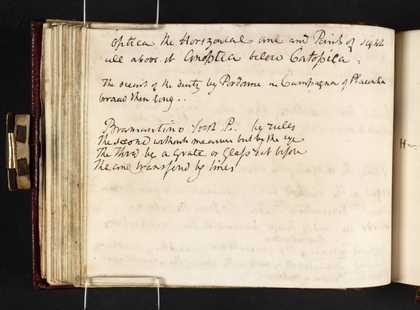 Optica the Horizontal line and Point of sight
all above it Anoptica below Catopica.
The of the deity by Pordone in Campagna of Placentia
broad than long..
Bramantino first P. by rules
The second without measure but by the eye
The Third by a Grate or Glass set before
The one transfond by lines
H